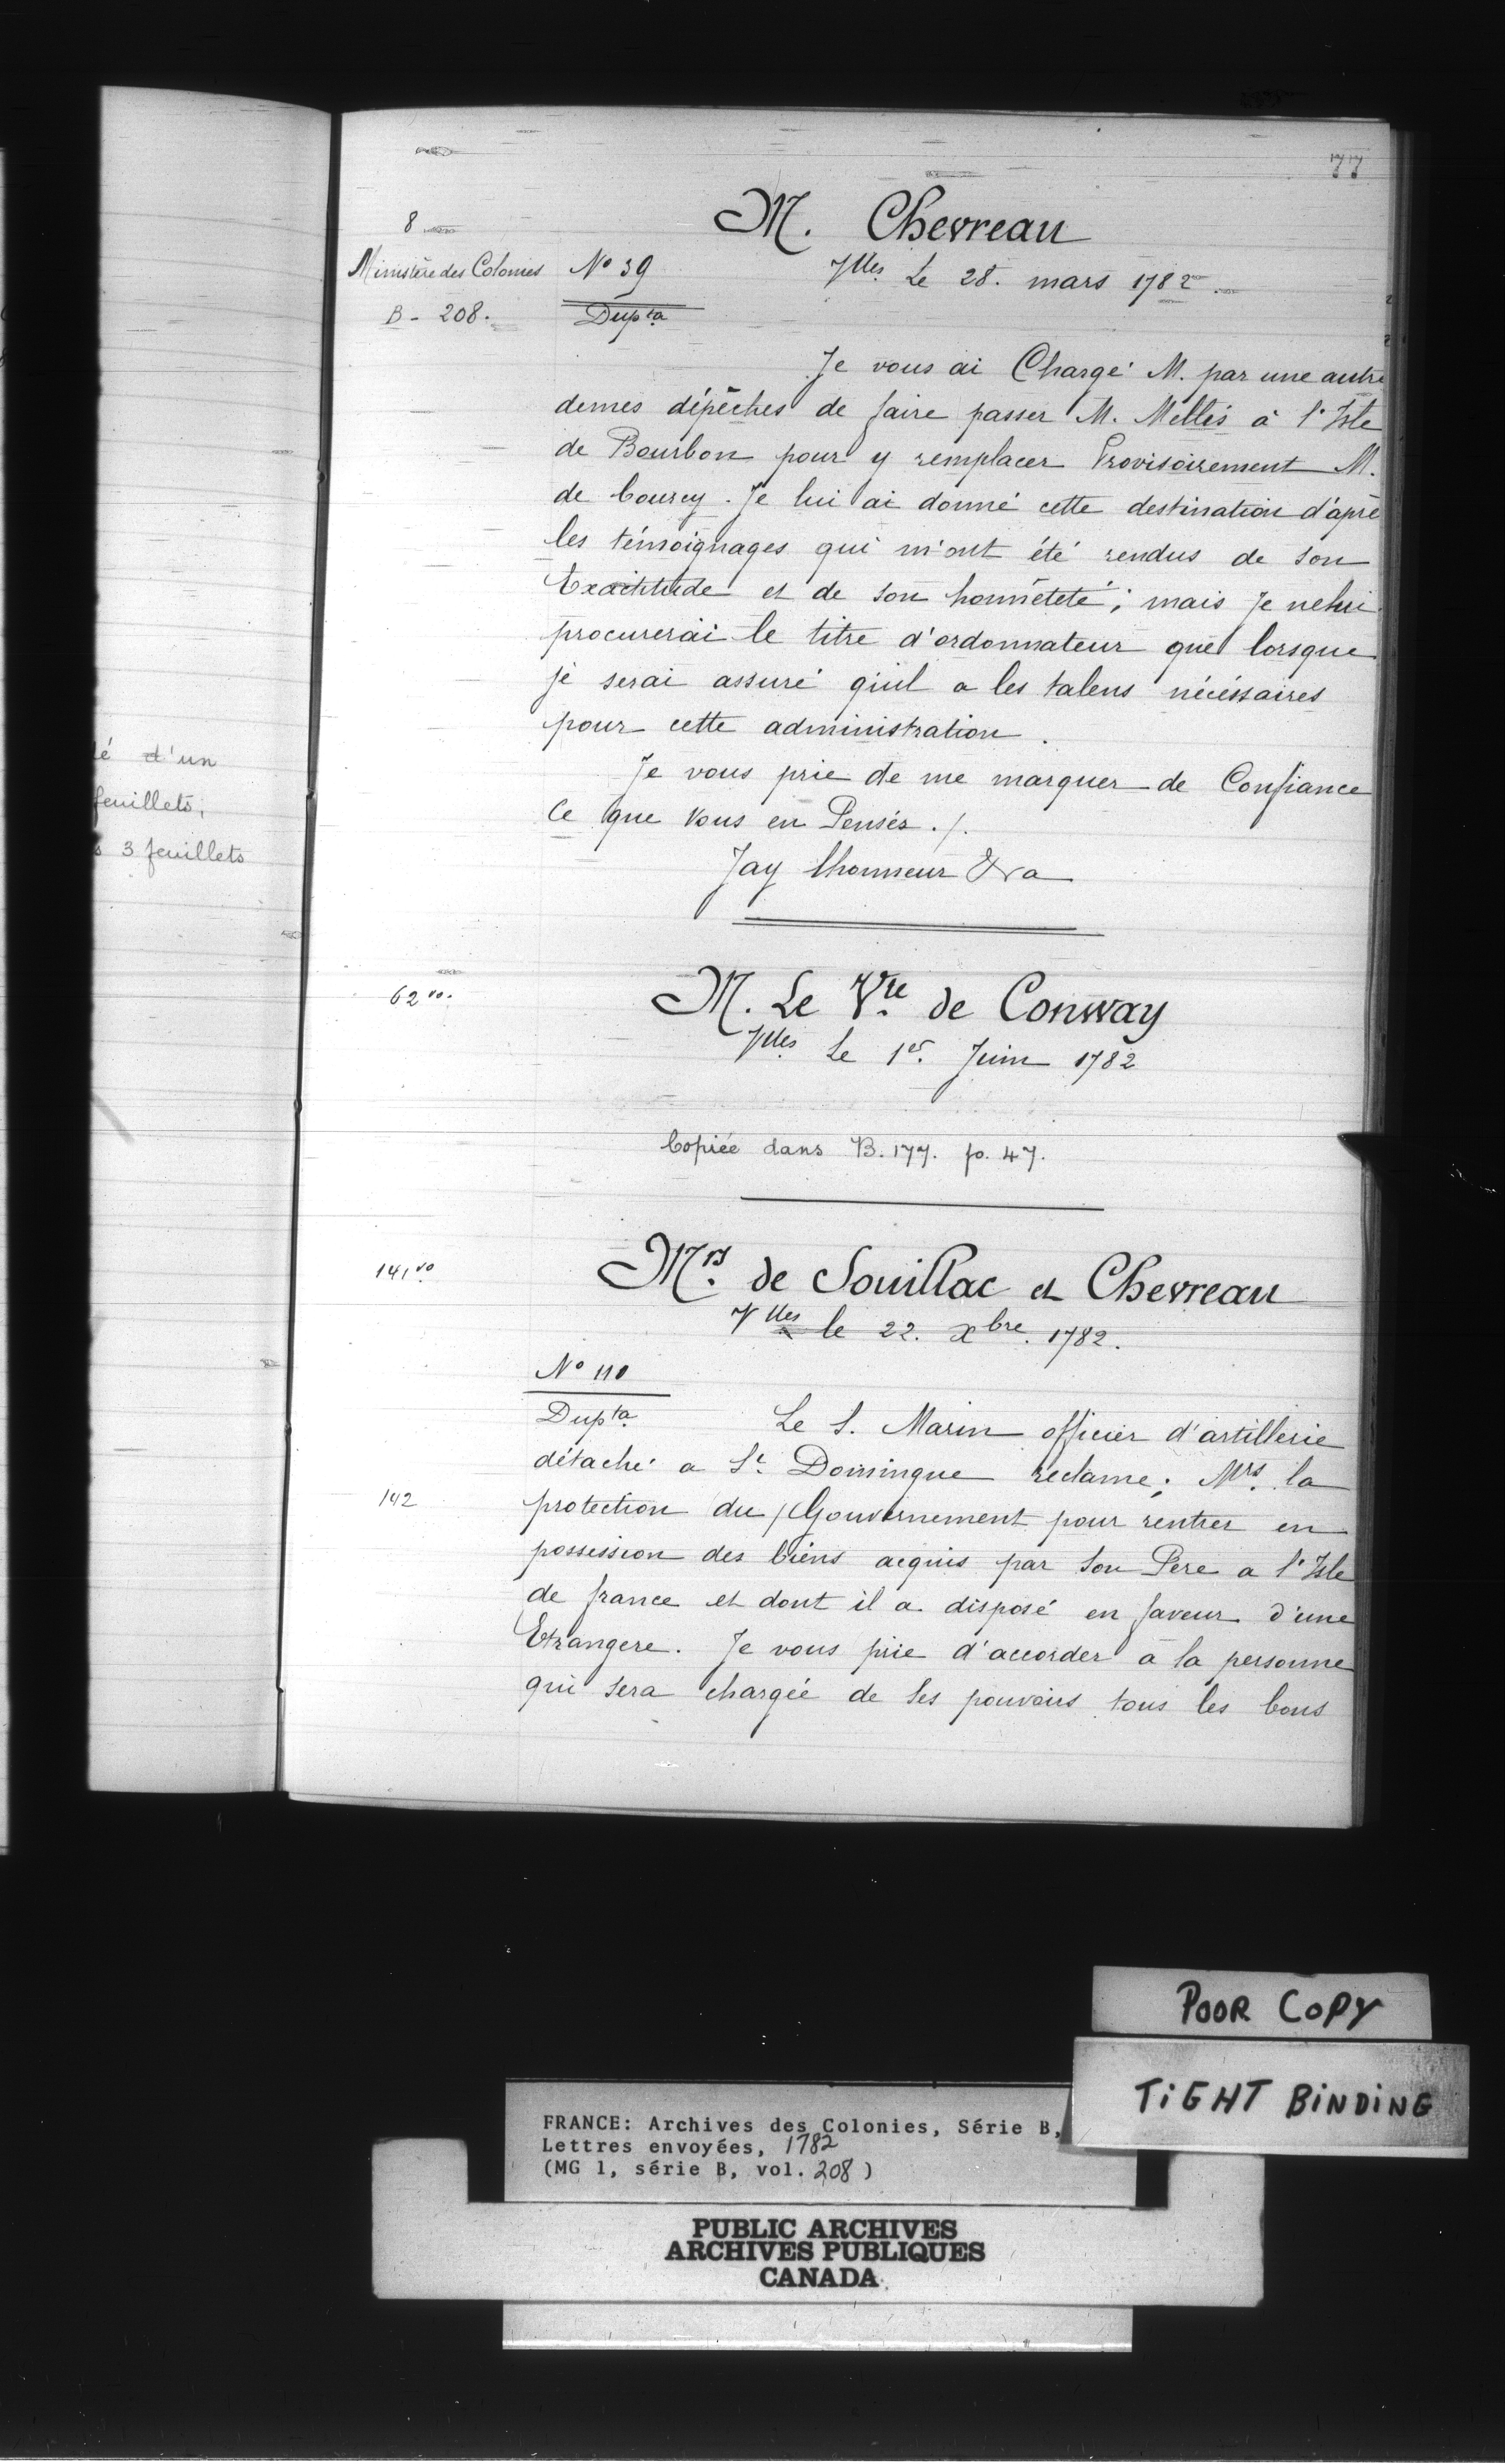 77
é d'un
feuillets,
s 3 feuillets
8
M. Chevreau
Ministère des Colonies
B - 208.
No 39
Vlles Le 28. mars 1782.
Dupta
Je vous ai Chargé M. par une autre
demes dépêches de faire passer M. Mellis à l'Isle
de Bourbon pour y remplacer Provisoirement M.
de Courcy. Je lui ai donné cette destination d'aprè
les témoignages qui m'ont été rendus de son
Exactitude et de son honnêteté; mais Je nelui
procurerai le titre d'ordonnateur que lorsque
je serai assuré qu'il a les talens nécéssaires
pour cette administration.
Je vous prie de me marquer de Confiance
Ce que Vous en Pensés ./.
Jay lhonneur &ra
62 vo.
M. Le Vte de Conway
Vlles Le 1er. Juin 1782
Copiée dans B. 177. fo. 47.
141 vo
Mrs de Souillac et Chevreau
Vlles le 22. xbre. 1782.
No 110
Dupta
Le S. Marin officier d'artillerie
détaché a St. Domingue réclame; Mrs. la
142
protection du / Gouvernement pour rentrer en
possession des biens acquis par son Pere a l'Isle
de france et dont il a disposé en faveur d'une
Etrangere. Je vous prie d'accorder à la personne
qui sera chargée de ses pouvoirs tous les bons
POOR COPY
TIGHT BINDING
FRANCE: Archives des Colonies, Série B,
Lettres envoyées, 1782
(MG 1, série B, vol. 208)
PUBLIC ARCHIVES
ARCHIVES PUBLIQUES
CANADA